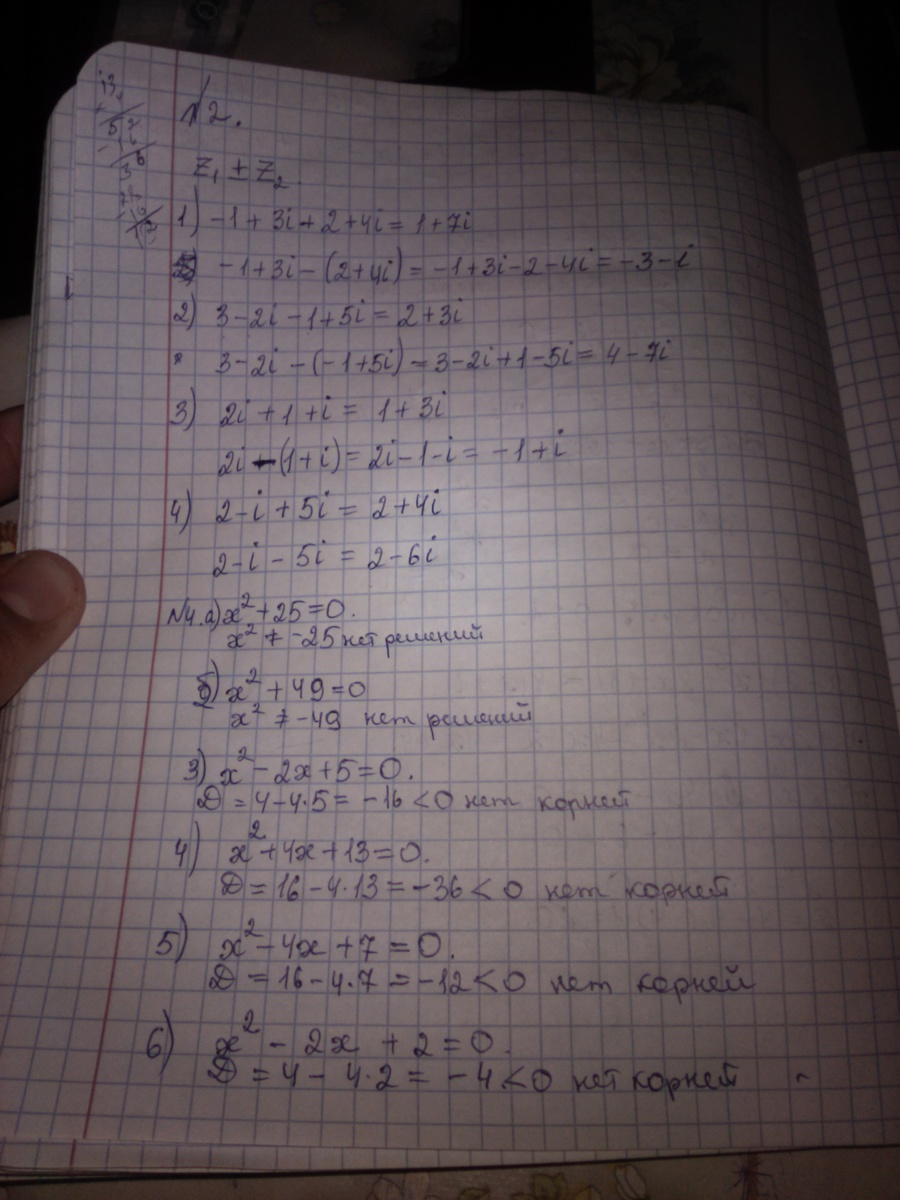 №2.
z₁ ± z₂
1) -1 + 3i + 2 + 4i = 1 + 7i
-1+3i - (2+4i) = -1+3i-2-4i = -3-i
2) 3-2i-1+5i = 2+3i
3-2i - (-1+5i) = 3-2i+1-5i = 4-7i
3) 2i + 1 + i = 1 + 3i
2i - (1+i) = 2i-1-i = -1+i
4) 2-i + 5i = 2+4i
2-i - 5i = 2-6i
№4. а) x² + 25 = 0.
x² ≠ -25 нет решений
б) x² + 49 = 0
x² ≠ -49 нет решений
3) x² - 2x + 5 = 0.
D = 4-4·5 = -16 < 0 нет корней
4) x² + 4x + 13 = 0.
D = 16 - 4·13 = -36 < 0 нет корней
5) x² - 4x + 7 = 0.
D = 16 - 4·7 = -12 < 0 нет корней
6) x² - 2x + 2 = 0.
D = 4 - 4·2 = -4 < 0 нет корней